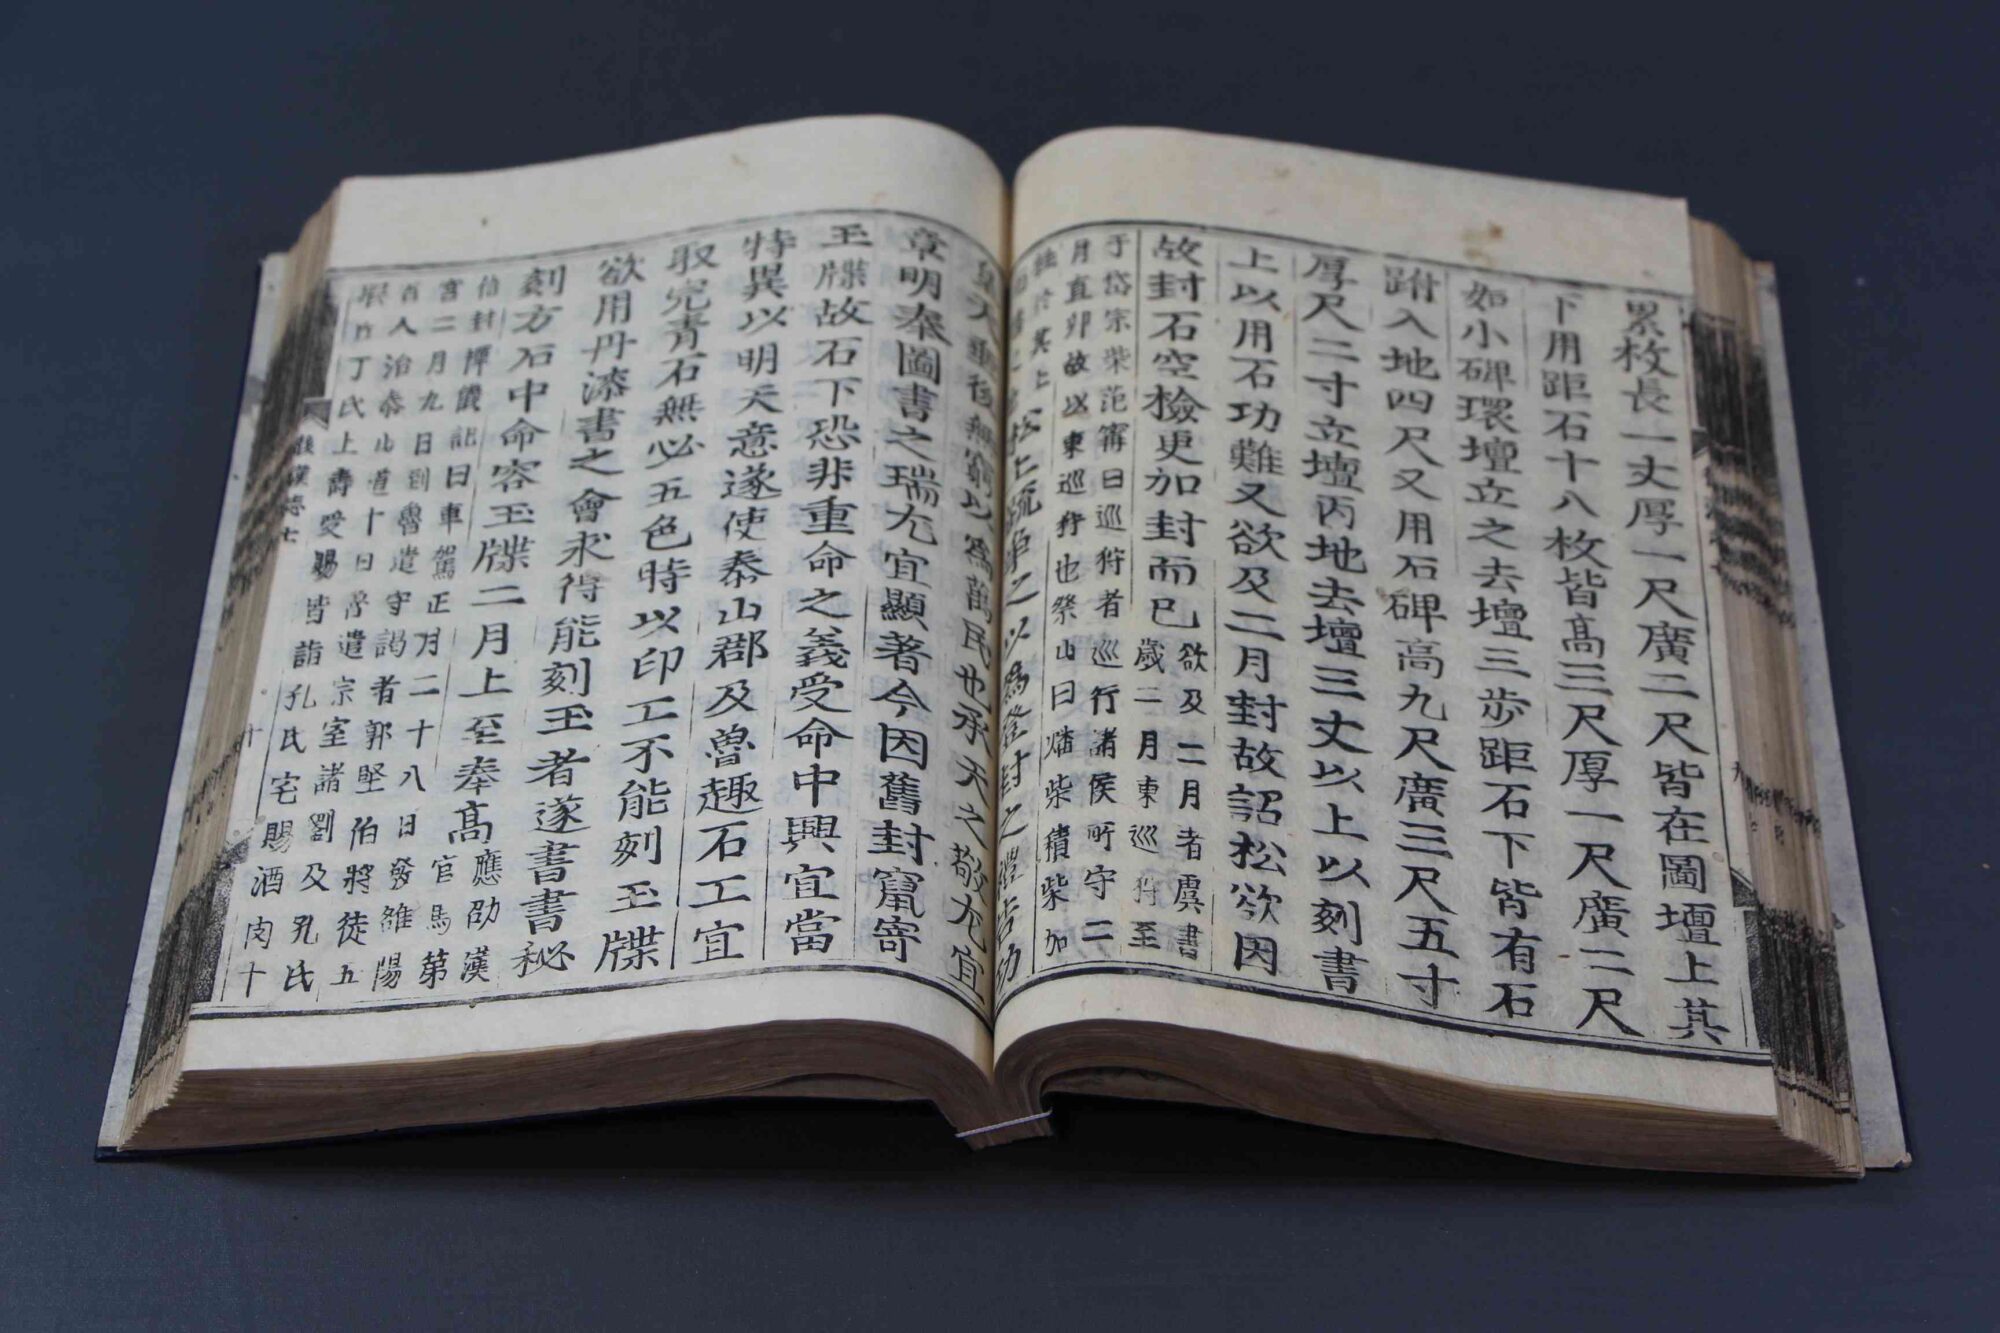 累枚長一丈厚一尺廣二尺皆在圖壇上其
下用距石十八枚皆高三尺厚一尺廣二尺
如小碑環壇立之去壇三步距石下皆有石
跗入地四尺又用石碑高九尺廣三尺五寸
厚尺二寸立壇丙地去壇三丈以上以刻書
上以用石功難又欲及二月封故詔松欲因
故封石空檢更加封而已
欲及二月者虞書
歲二月東巡狩至
于岱宗柴范甯曰巡狩者巡行諸侯所守二
月直卯故以東巡狩也祭山曰燔柴積柴加
牲於其上
松上疏爭之以爲登封之禮告功
皇天垂後無窮以爲萬民也承天之敬尤宜
章明奉圖書之瑞尤宜顯著今因舊封竄寄
玉牒故石下恐非重命之義受命中興宜當
特異以明天意遂使泰山郡及魯趣石工宜
取完青石無必五色時以印工不能刻玉牒
欲用丹漆書之會求得能刻玉者遂書書秘
刻方石中命容玉牒二月上至奉高
應劭漢
官馬第
伯封禪儀記曰車駕正月二十八日發雒陽
宮二月九日到魯遣守謁者郭堅伯將徒五
百人治泰山道十日魯遣宗室諸劉及孔氏
丁氏上壽受賜皆詣孔氏宅賜酒肉十
十